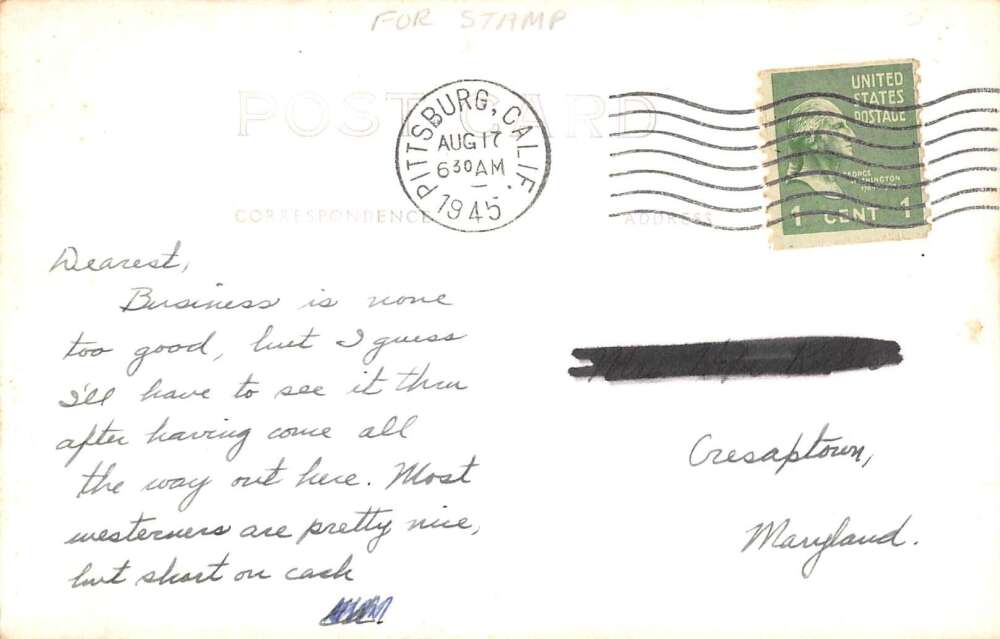 FOR STAMP
POST CARD
PITTSBURG, CALIF.
AUG 17
6 30 AM
1945
UNITED
STATES
POSTAGE
GEORGE
WASHINGTON
1 CENT 1
CORRESPONDENCE
ADDRESS
Dearest,
Business is none
too good, but I guess
I'll have to see it thru
after having come all
the way out here. Most
westerners are pretty nice,
but short on cash
Cresaptown,
Maryland.